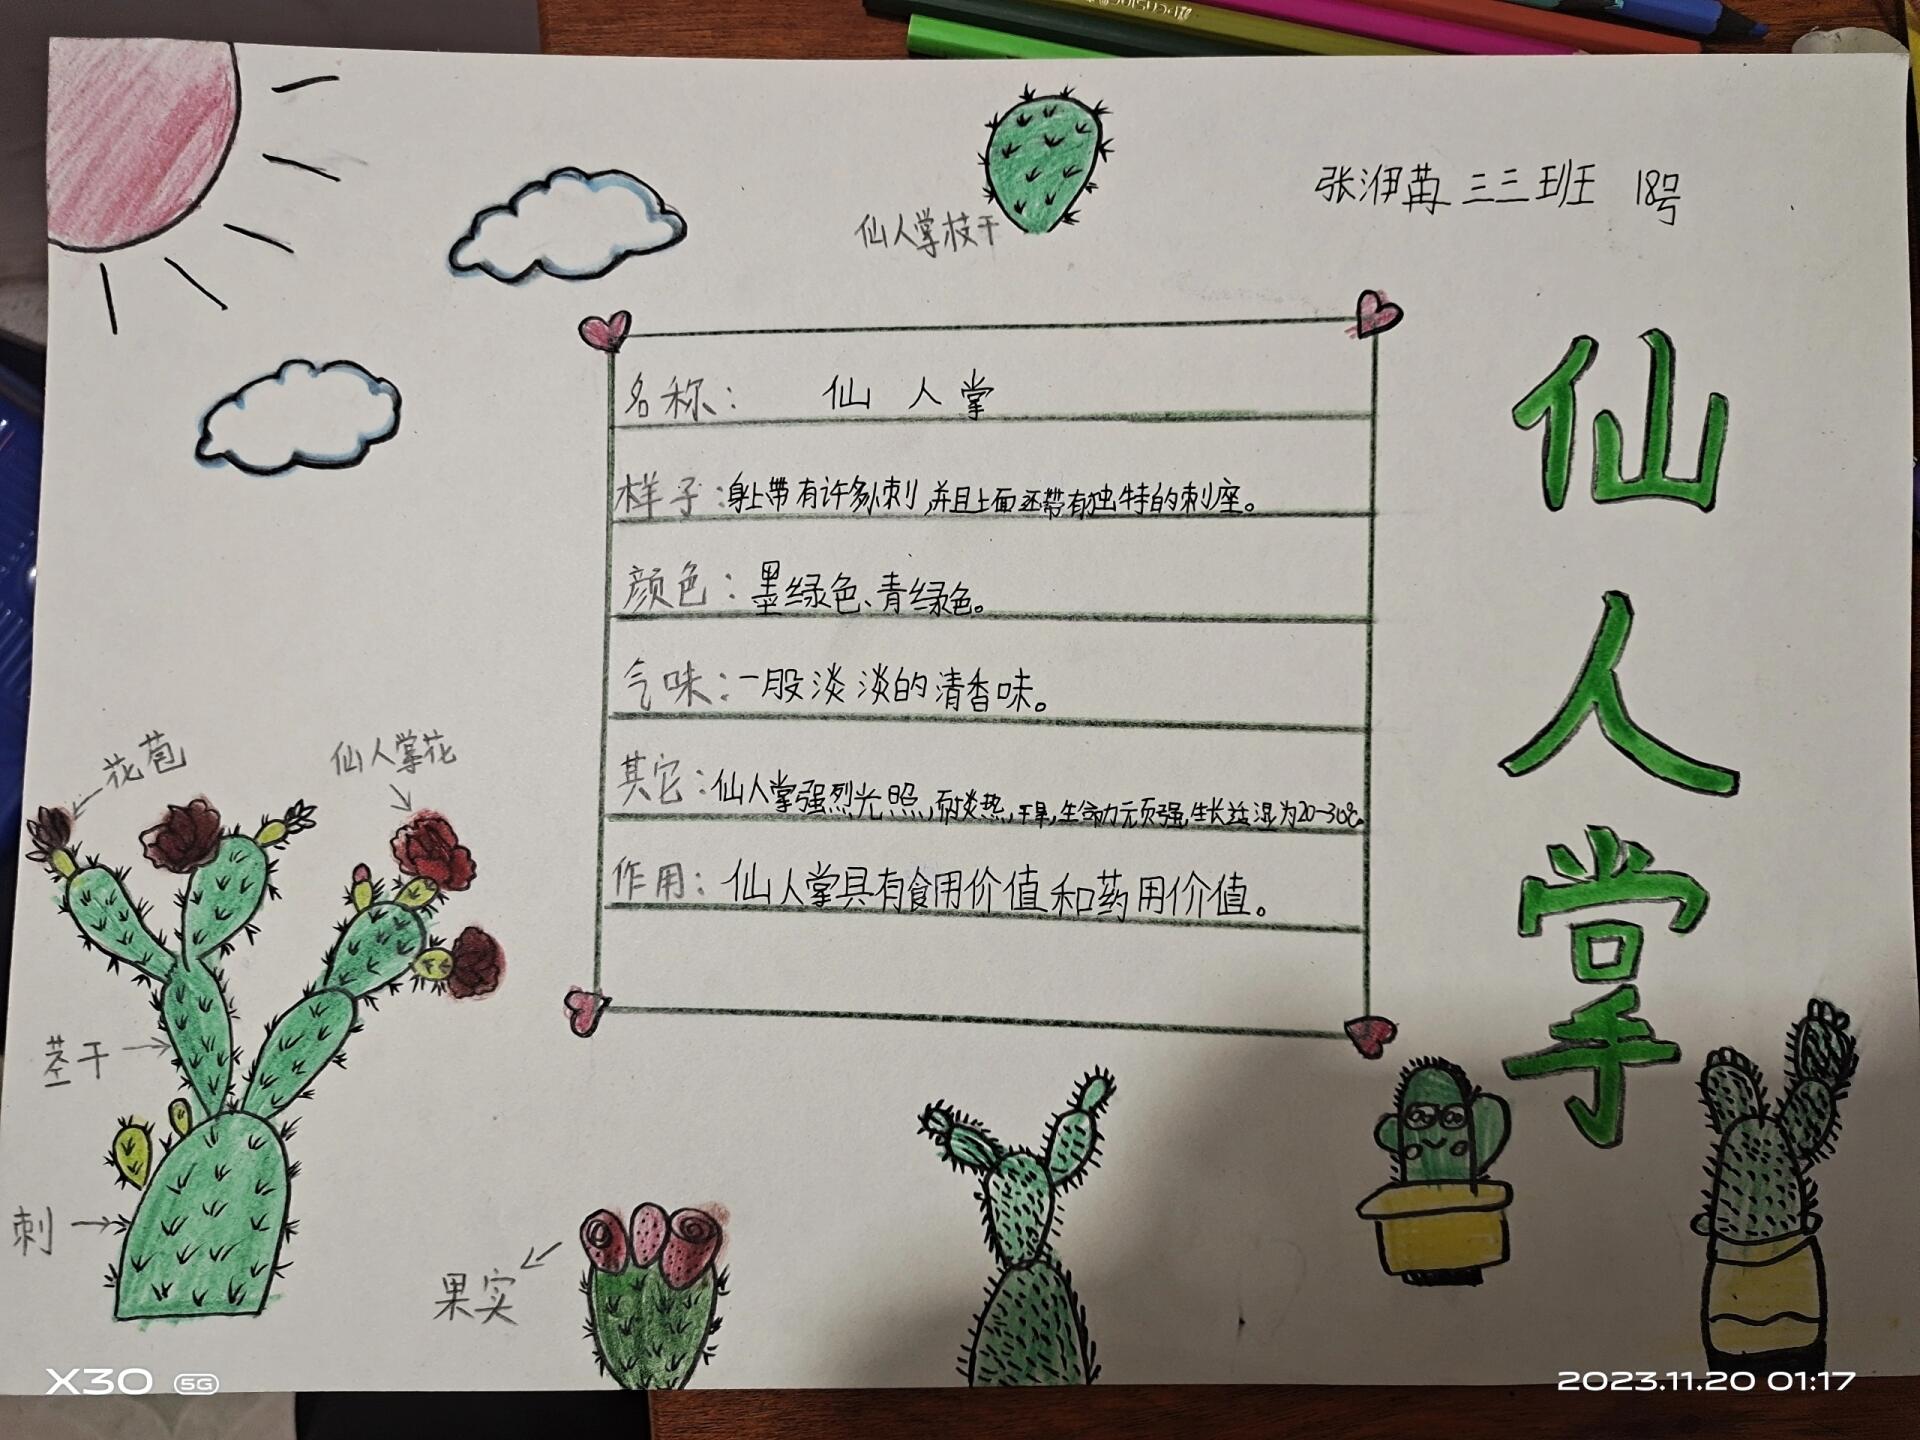 张洢苒 三三班 18号
仙人掌枝干
仙人掌
名称: 仙人掌
样子:身上带有许多小刺,并且上面还带有独特的刺座。
颜色:墨绿色、青绿色。
气味:一股淡淡的清香味。
其它:仙人掌强烈光照,耐炎热,干旱,生命力元页强,生长适湿为20-30℃.
作用:仙人掌具有食用价值和药用价值。
花苞
仙人掌花
茎干
刺
果实
X30 5G
2023.11.20 01:17